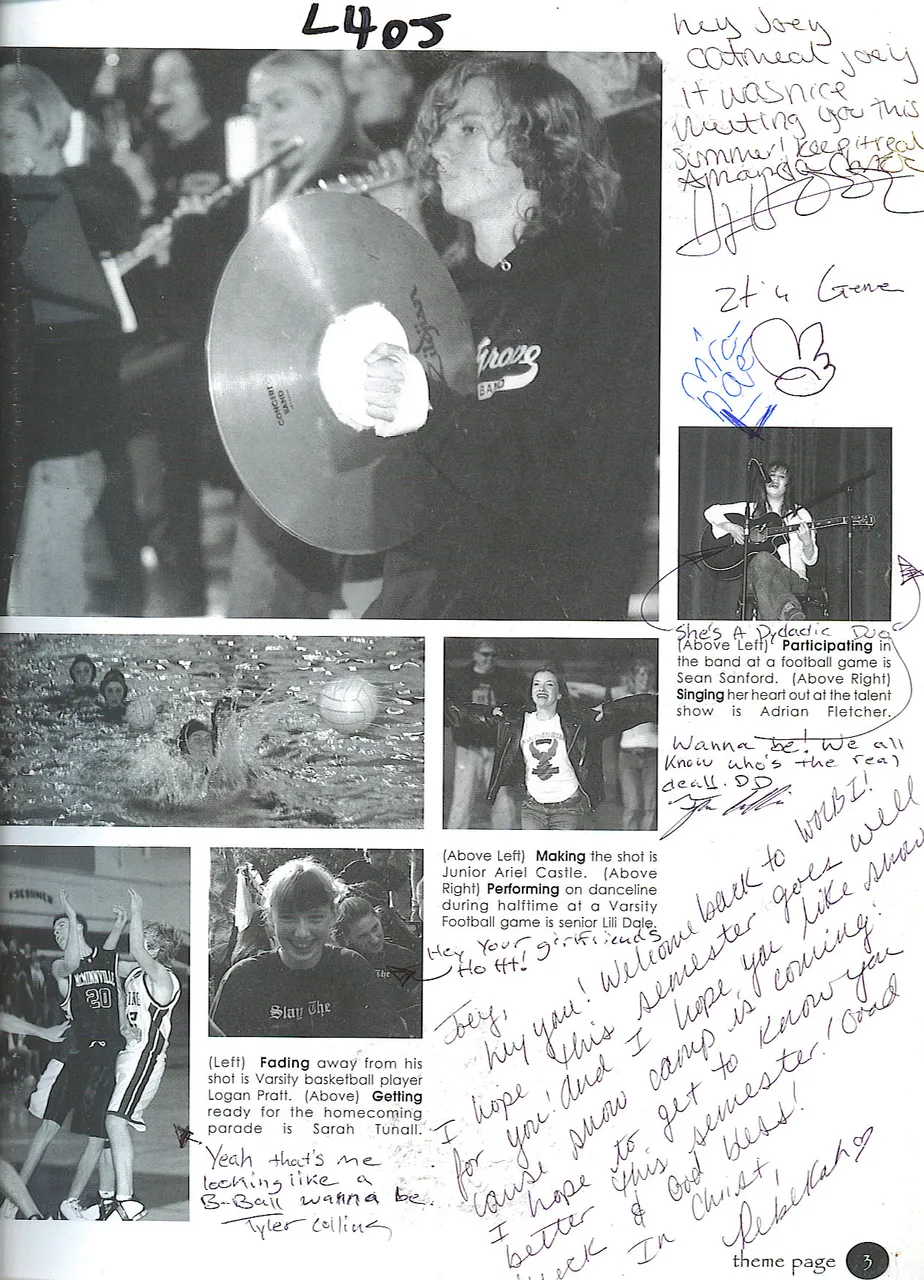 L405
hey Joey
oatmeal joey
it was nice
meeting you this
summer! keep it real
Amanda
It's Gene
Grove
BAND
Zildjian
CONCERT
BAND
She's A Dydadic Duo
(Above Left) Participating in
the band at a football game is
Sean Sanford. (Above Right)
Singing her heart out at the talent
show is Adrian Fletcher.
Wanna be! We all
Know who's the real
deall. DD
(Above Left) Making the shot is
Junior Ariel Castle. (Above
Right) Performing on danceline
during halftime at a Varsity
Football game is senior Lili Dale.
Hey Your girlfriends
Hottt!
MCMINNVILLE
20
Slay The
The
(Left) Fading away from his
shot is Varsity basketball player
Logan Pratt. (Above) Getting
ready for the homecoming
parade is Sarah Tunall.
Yeah that's me
looking like a
B-Ball wanna be.
Tyler Collins
Joey,
hey you! Welcome back to WOLBI!
I hope this semester goes well
for you! And I hope you like snow
cause snow camp is coming!
I hope to get to know you
better this semester! Good
luck & God bless!
In Christ,
Rebekah
theme page 3